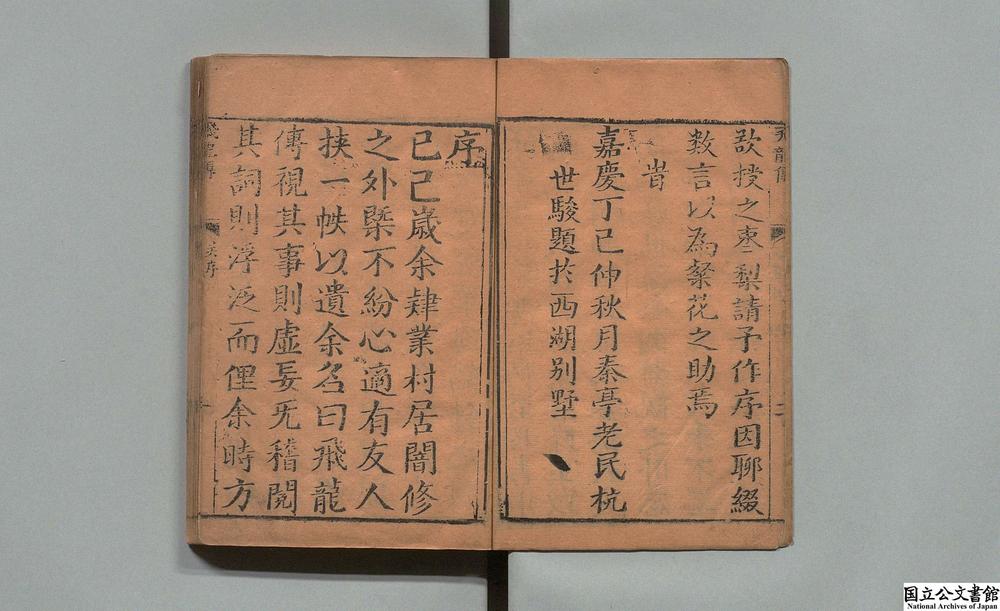 欲授之棗梨請予作序因聊綴
数言以為粲花之助焉
旹
嘉慶丁巳仲秋月秦亭老民杭
世駿題於西湖别墅
序
己巳歲余肄業村居闇修
之外槩不紛心適有友人
挟一帙以遺余名曰飛龍
傳視其事則虛妄无稽閱
其詞則浮泛而俚余時方
国立公文書館
National Archives of Japan